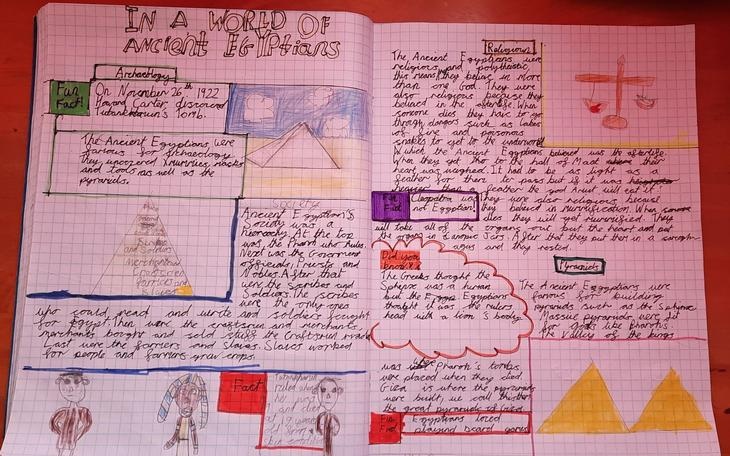 IN A WORLD OF
ANCIENT EGYPtians
Archaeology
Fun
Fact!
On November 26th 1922
Howard Carter discovered
Tutankhamun's Tomb.
The Ancient Egyptians were
famous for Archaeology
they uncovered Mummies,
and tools as well as the
pyramids.
Society
Ancient Egyptian's
Society was a
hierarchy. At the top
was the Pharoh who Rules.
Next was the Government
officials, Priests and
Nobles. After that
were the Scribes and
Soldiers. The scribes
were the only ones
who could read and write and soldiers fought
for Egypt. Then were the craftsmen and merchants,
merchants bought and sold stuff the Craftsmen made
Last were the farmers and slaves. Slaves worked
for people and farmers grew crops.
Fact
Religious
The Ancient Egyptians were
religious and polytheistic,
this means they believe in more
than one God. They were
also religious because they
believed in the afterlife. When
someone dies they have to go
through dangers such as lakes
of fire and poisonous
snakes to get to the underworld
which the Ancient Egyptians believed was the afterlife.
When they get tho to the hall of Maat their
heart was weighed. It had to be as light as a
feather for them to pass but if was
heavier than a feather the god Amut will eat it!
Fun
Fact
Cleopatra was
not Egyptian!
They were also religious because
they believed in Mummification. When
dies they will get mummified. They
will take all of the organs out but the heart and put
the organ in Canopic Jars. After that they put them in a
and they rested.
Did you
know?
The Greeks thought the
Sphinx was a human
but the Egyptians
thought it was the rulers
head with a lion's body.
Pyramids
The Ancient Egyptians were
famous for building
pyramids such as the Sphinx
Massive pyramids were
for gods like pharohs.
The Valley of the kings
was where Pharoh's tombs
were placed when they died
Giza is where the pyramids
were built, we call this
the great pyramids of Giza
Fun
Fact
Egyptians loved
playing board games